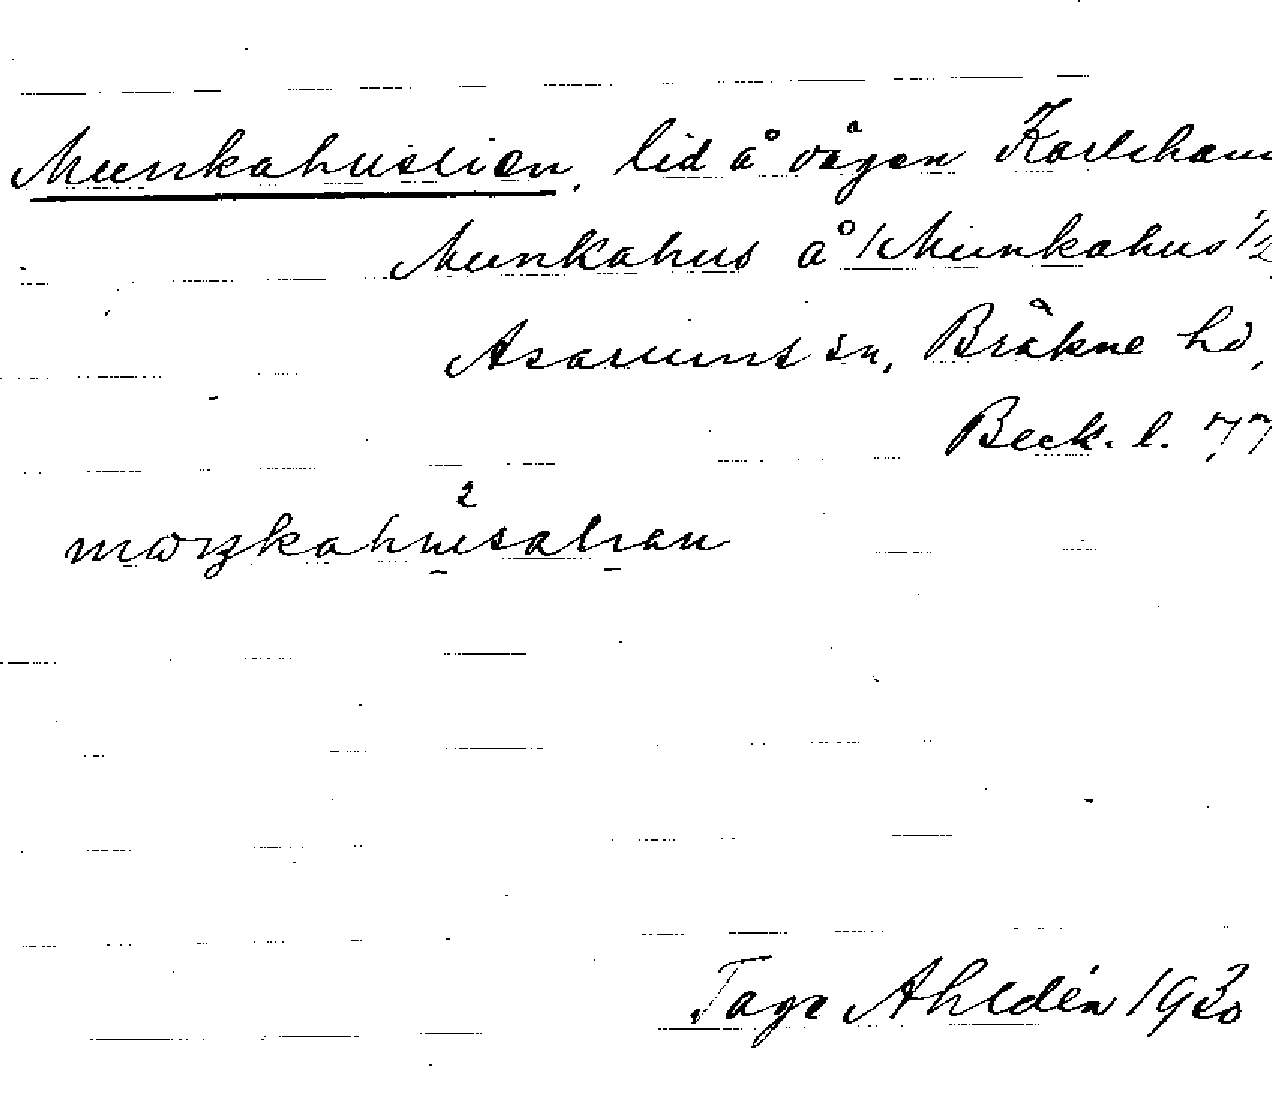 Munkahuslien, lid å vägen Karlsham
Munkahus å /Munkahus 1/2
Asarums sn, Bräkne hd,
Beck. l. 77
Tage Ahldén 1930